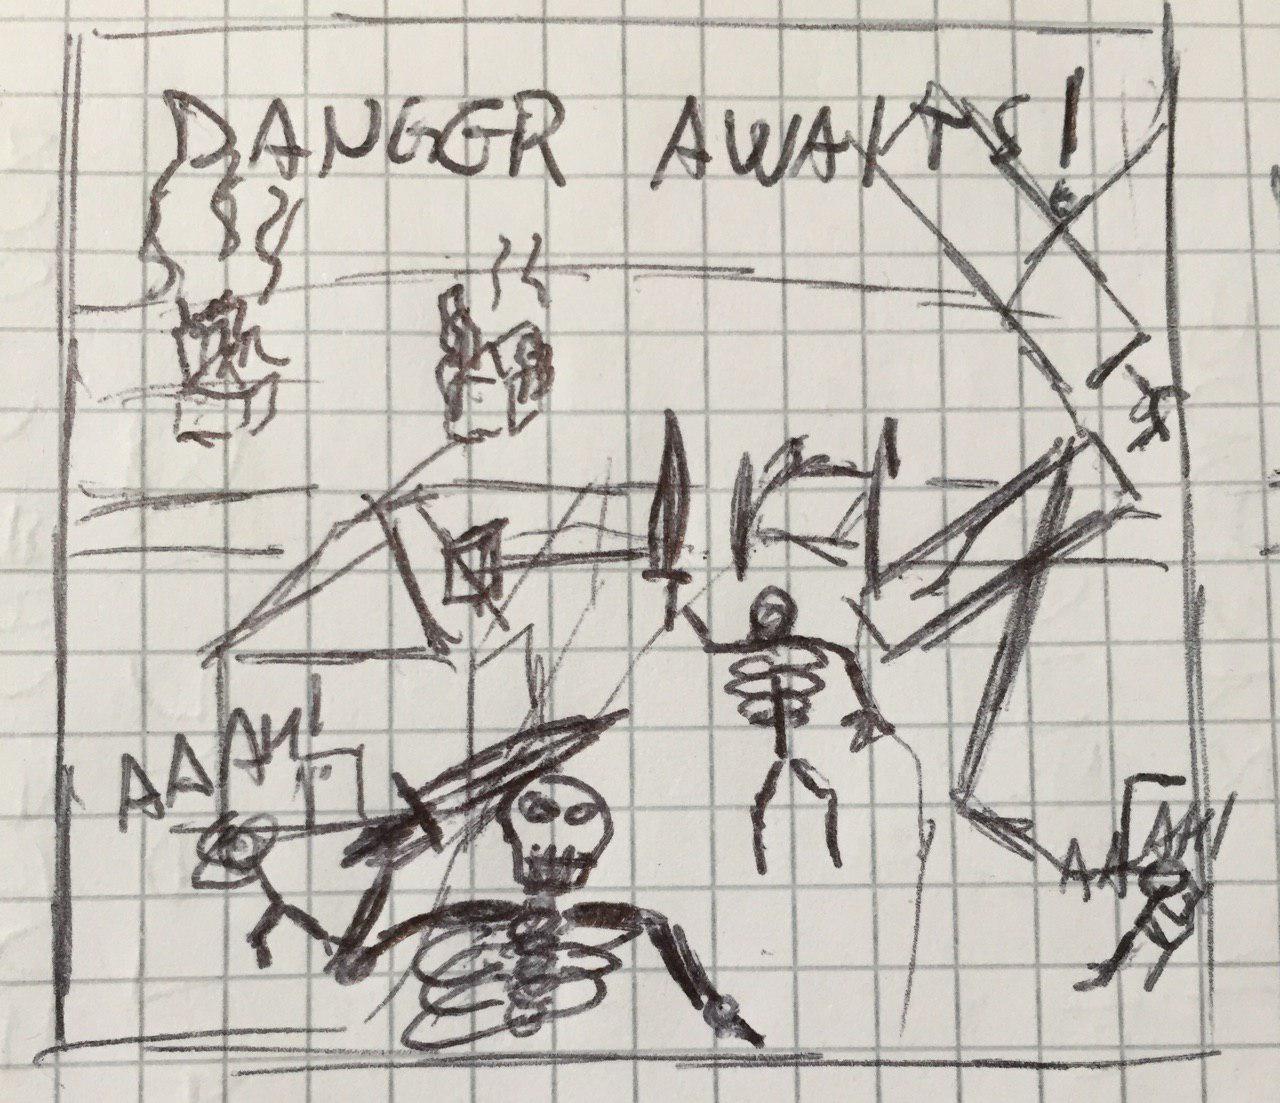 DANGER AWAITS!
AAAH!
AAAH!